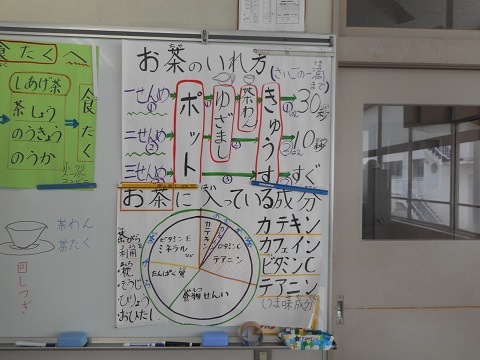 食たく
しあげ茶
茶しょう
のうきょう
のうか
食たく
茶わん
茶たく
回しつぎ
お茶のいれ方
(さいごの一滴まで)
一せんめ
二せんめ
三せんめ
ポット
ゆざまし
茶わん
きゅうす
30秒
10秒
すぐ
お茶に入っている成分
カテキン
カフェイン
ビタミンC
テアニン
(うま味成分)
カテキン
ビタミンE
ミネラル
テアニン
たんぱく質
食物せんい
茶がら
利用
・枕
・そうじ
・ひりょう
・おひたし